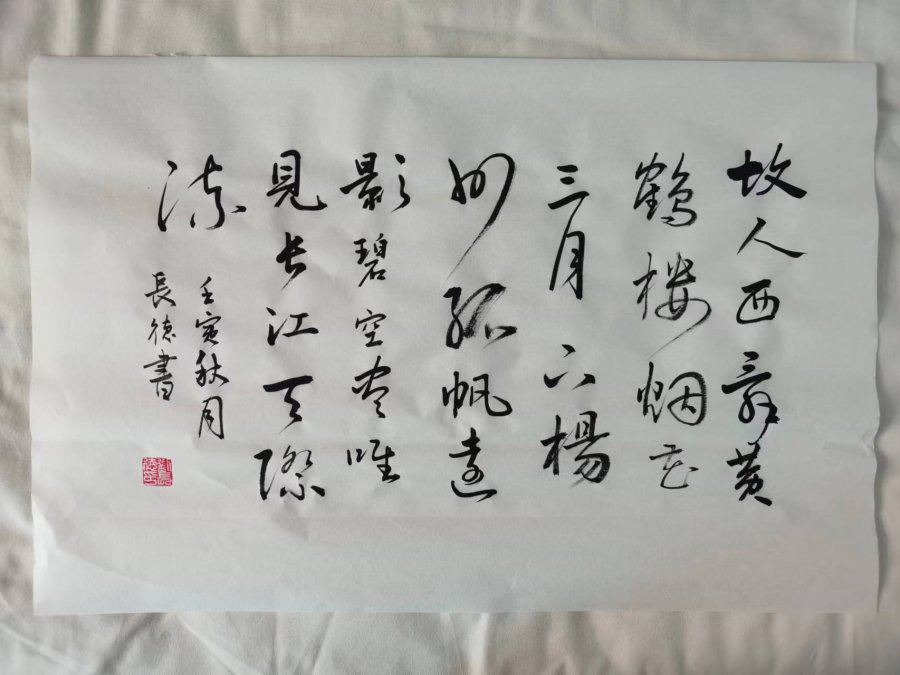 故人西辞黄
鹤楼烟花
三月下楊
州孤帆遠
影碧空尽唯
見长江天際
流
壬寅秋月
長德書